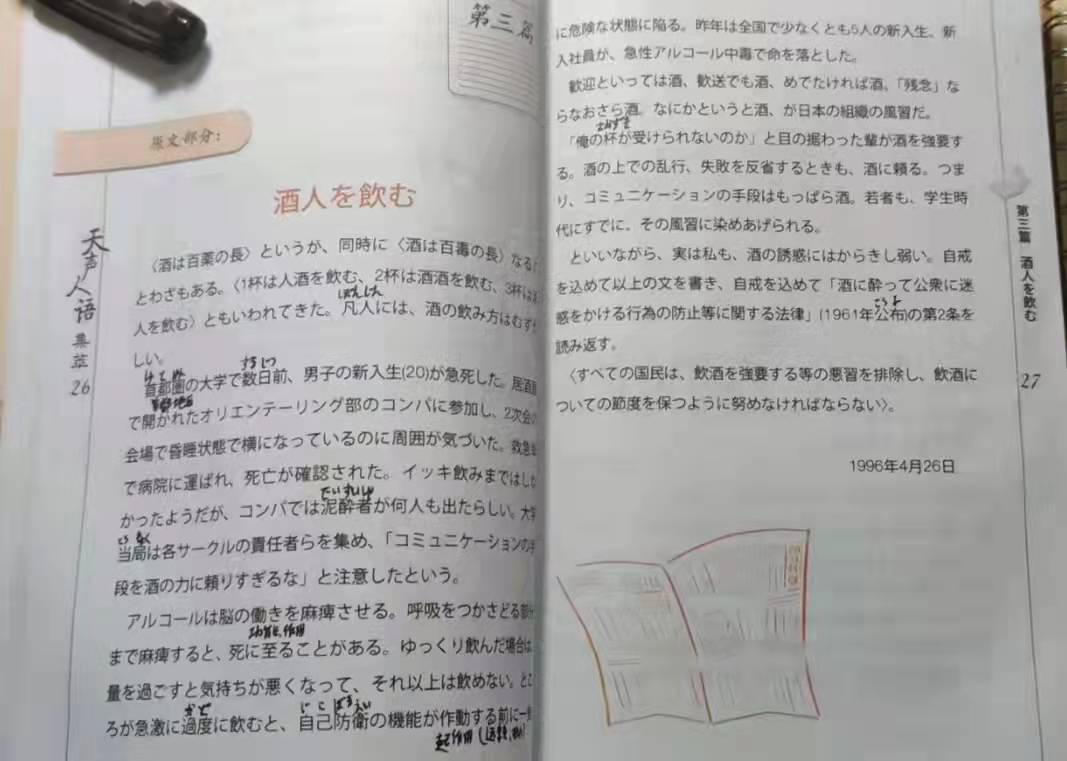 第三篇
原文部分：
酒人を飲む
天声人语
集萃
26
〈酒は百薬の長〉というが、同時に〈酒は百毒の長〉なる
とわざもある。〈1杯は人酒を飲む、2杯は酒酒を飲む、3杯は
ぼんじん
人を飲む〉ともいわれてきた。凡人には、酒の飲み方はむず
しい。
すうじつ
首都圏の大学で数日前、男子の新入生(20)が急死した。居酒
で開かれたオリエンテーリング部のコンパに参加し、2次会
会場で昏睡状態で横になっているのに周囲が気づいた。救急
で病院に運ばれ、死亡が確認された。イッキ飲みまではし
でいすいしゃ
かったようだが、コンパでは泥酔者が何人も出たらしい。大学
当局は各サークルの責任者らを集め、「コミュニケーションの手
段を酒の力に頼りすぎるな」と注意したという。
アルコールは脳の働きを麻痺させる。呼吸をつかさどる部分
功能,作用
まで麻痺すると、死に至ることがある。ゆっくり飲んだ場合は
量を過ごすと気持ちが悪くなって、それ以上は飲めない。とこ
かど じこ ぼうえい
ろが急激に過度に飲むと、自己防衛の機能が作動する前に一
起作用
に危険な状態に陥る。昨年は全国で少なくとも5人の新入生、新
入社員が、急性アルコール中毒で命を落とした。
歓迎といっては酒、歓送でも酒、めでたければ酒。「残念」な
らなおさら酒。なにかというと酒、が日本の組織の風習だ。
「俺の杯が受けられないのか」と目の据わった輩が酒を強要す
る。酒の上での乱行、失敗を反省するときも、酒に頼る。つま
り、コミュニケーションの手段はもっぱら酒。若者も、学生時
代にすでに、その風習に染めあげられる。
といいながら、実は私も、酒の誘惑にはからきし弱い。自戒
を込めて以上の文を書き、自戒を込めて「酒に酔って公衆に迷
惑をかける行為の防止等に関する法律」(1961年公布)の第2条を
読み返す。
〈すべての国民は、飲酒を強要する等の悪習を排除し、飲酒に
ついての節度を保つように努めなければならない〉。
1996年4月26日
第三篇 酒人を飲む
27